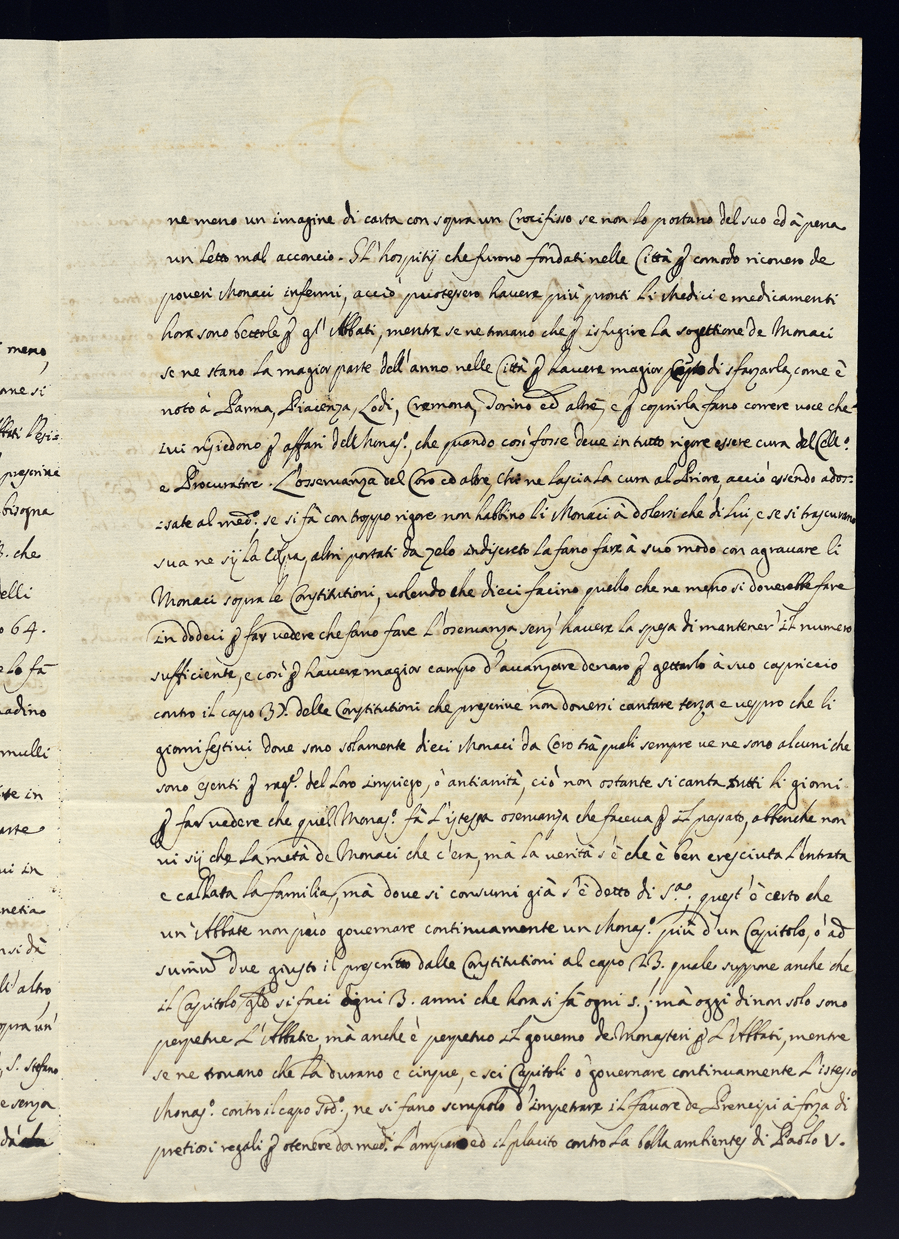 meno,
ne si
bisogna
che
elli
o 64.
e lo fà
adino
mulli
te in
arte
ui in
netia
nsi dà
li altro
opra un'
, S. stefano
e senza
ne meno un imagine di carta con sopra un Crocifisso se non lo portano del suo ed à pena
un Letto mal acconcio. Gl' hospitij che furono fondati nelle Città ꝑ comodo ricouero de
poueri Monaci infermi, acciò puotessero hauere più pronti li Medici e medicamenti
hora sono bettole ꝑ gl' Abbati, mentre se ne trouano che ꝑ isfugire la sogettione de Monaci
se ne stano la magior parte dell' anno nelle Città ꝑ hauere magior di sforzarla, come è
noto à Parma, Piacenza, Lodi, Cremona, Torino ed altre, e ꝑ coprirla fano correre voce che
iui risiedono ꝑ affari dell Monas.º, che quando così fosse deue in tutto rigore essere cura del Cell.º
e Procuratore. L'osseruanza del Coro ed altre, chi ne lascia la cura al Priore, acciò essendo ados:
:sate al med.º, se si fà con troppo rigore non habbino li Monaci à dolersi che di lui, e se si trascurano
sua ne sij la colpa, altri portati da zelo indiscreto la fano fare à suo modo con agrauare li
Monaci sopra le Constitutioni, uolendo che dieci facino quello che ne meno si douerebbe fare
in dodeci ꝑ far uedere che fano fare l'oseruanza senz' hauere la spesa di mantener' il numero
sufficiente, e così ꝑ hauere magior campo d'auanzare denaro ꝑ gettarlo à suo capriccio
contro il capo 37. delle Constitutioni che prescriue non douersi cantare terza e uespro che li
giorni festiui doue sono solamente dieci Monaci da Coro trà quali sempre ue ne sono alcuni che
sono esenti ꝑ rag.e del loro impiego, ò antianità, ciò non ostante si canta tutti li giorni
ꝑ far uedere che quel Monas.º fà l'istessa oseruanza che faceua ꝑ il passato, abbenche non
ui sij che la metà de Monaci che c'era, mà la uerità s'è che è ben cresciuta l'entrata
e callata la familia, mà doue si consumi già s'è detto di s.ª, quest' è certo che
un' Abbate non può gouernare continuamente un Monas.º più d'un Capitolo, ò ad
sumũ due giusto il prescritto dalle Constitutioni al capo 23. quale suppone anche che
il Capitolo si faci ogni 3. anni che hora si fà ogni s.; mà oggi di non solo sono
perpetue l'Abbatie, mà anche è perpetuo il gouerno de Monasteri ꝑ l'Abbati, mentre
se ne trouano che la durano e cinque, e sei Capitoli ò gouernare continuamente l'istesso
Monas.º contro il capo sod.º, ne si fano scrupolo d'impetrare il fauore de Prencipi à forza di
pretiosi regali ꝑ otenere da med.i l'amparo ed il placito contro la bolla ambientes di Paolo V.